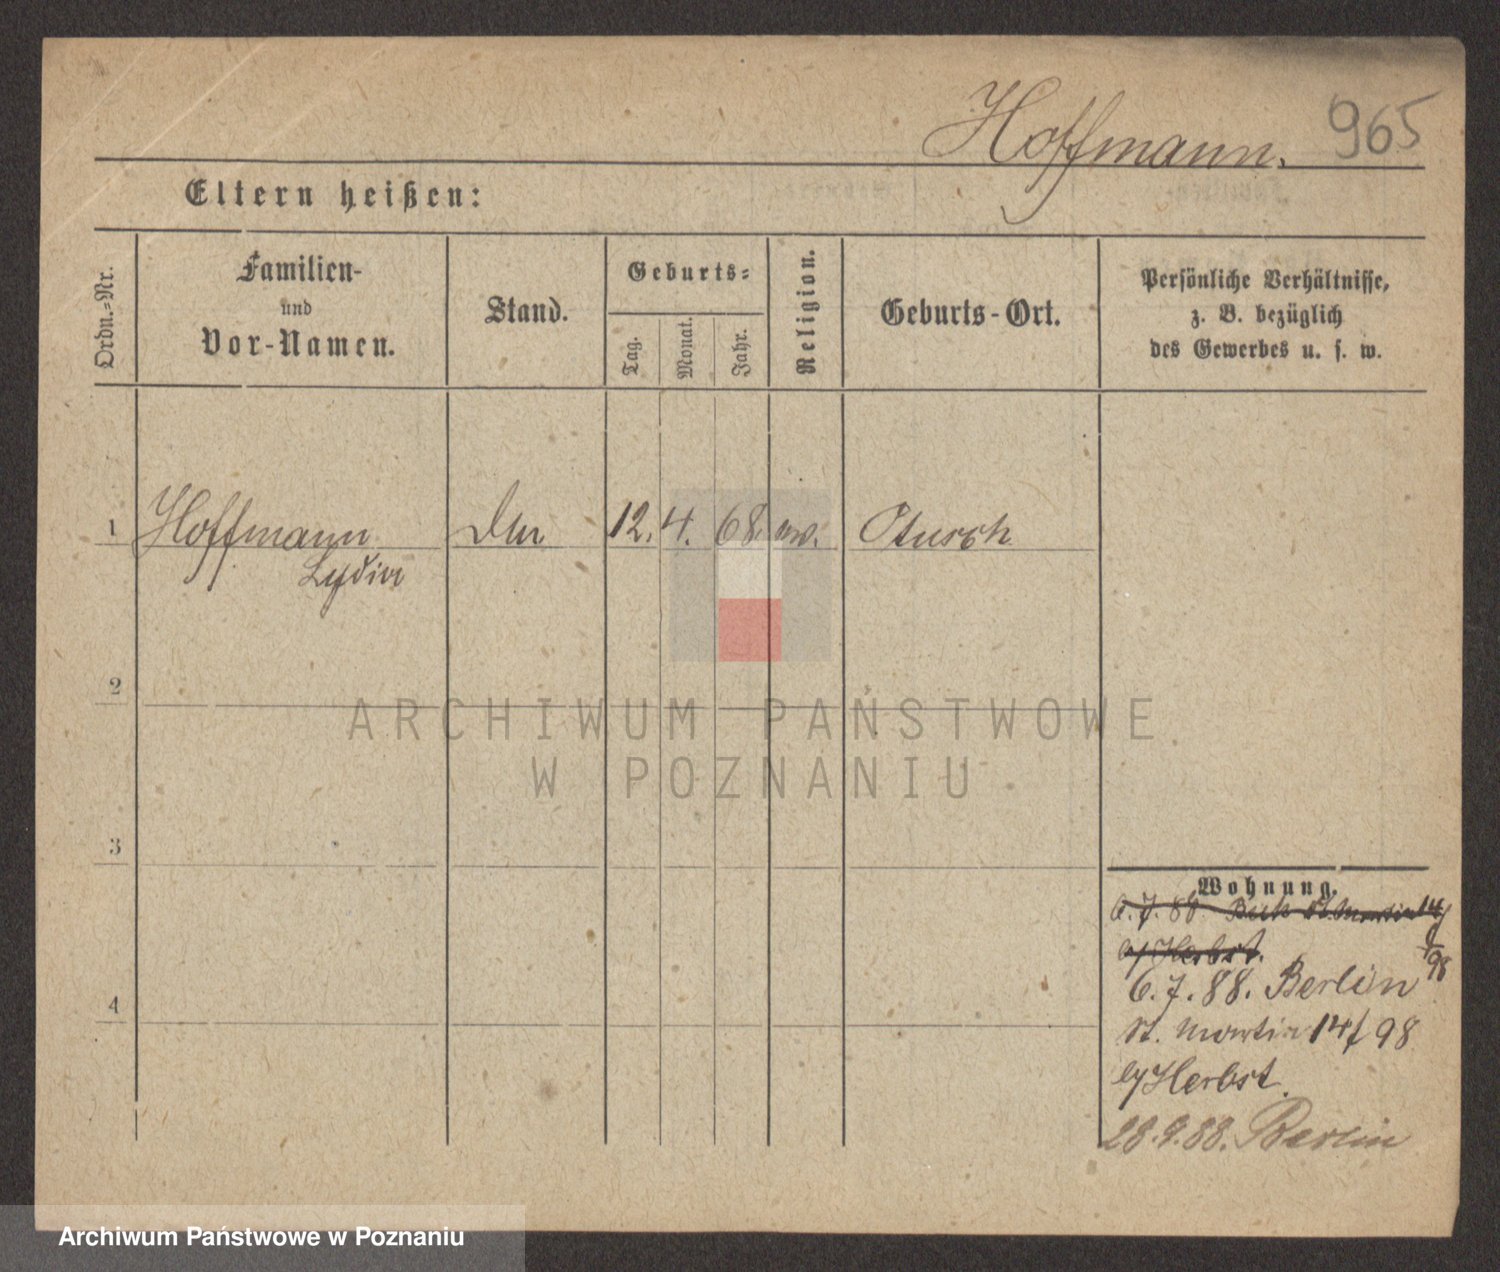 Hoffmann. 965
Eltern heißen:
Ordn.-Nr.
Familien-
und
Vor-Namen.
Stand.
Geburts-
Tag.
Monat.
Jahr.
Religion.
Geburts-Ort.
Persönliche Verhältnisse,
z. B. bezüglich
des Gewerbes u. s. w.
1 Hoffmann 12. 4. 68. Otusch
Lydia
2
3
4
Wohnung.
6. 7. 88. Buk St. Martin 14/
98
b/Herbst.
6. 7. 88. Berlin
St. Martin 14/98
b/Herbst.
28.9.88. Berlin
ARCHIWUM PAŃSTWOWE
W POZNANIU
Archiwum Państwowe w Poznaniu